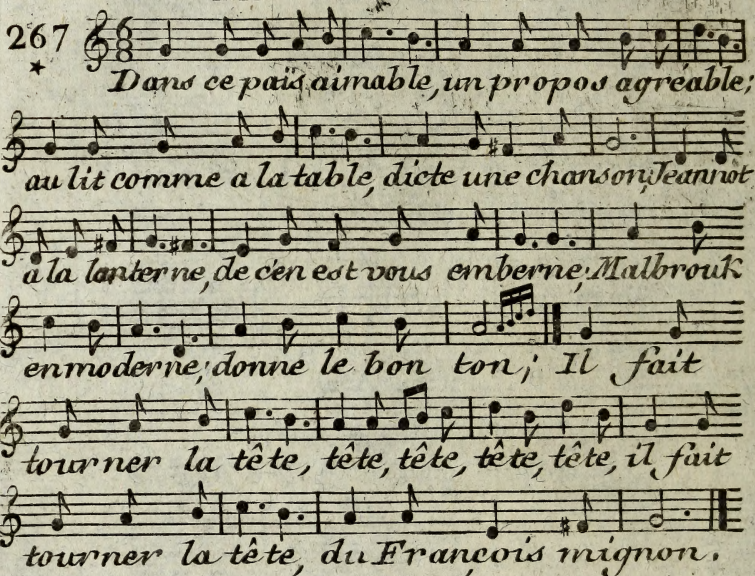 267
Dans ce païs aimable, un propos agréable;
au lit comme a la table, dicte une chanson; Jeannot
a la lanterne, de c'en est vous emberne; Malbrouk
en moderne; donne le bon ton; Il fait
tourner la tête, tête, tête, tête, tête, il fait
tourner la tête, du François mignon.